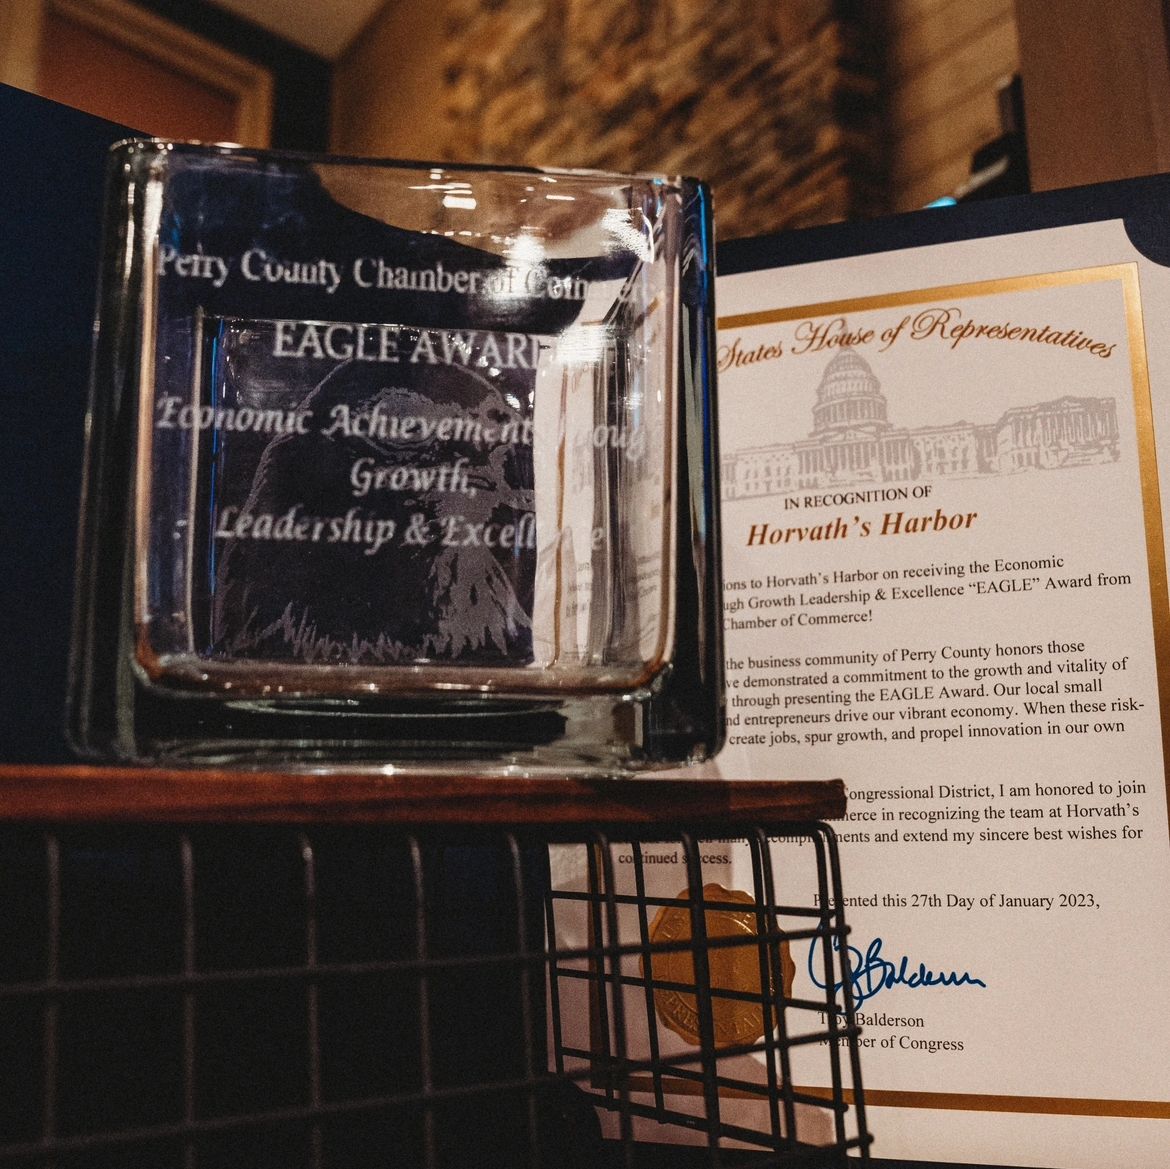 Perry County Chamber of Commerce
EAGLE AWARD
Economic Achievement
Growth,
Leadership & Excellence
States House of Representatives
IN RECOGNITION OF
Horvath's Harbor
to Horvath's Harbor on receiving the Economic
Growth Leadership & Excellence “EAGLE” Award from
Chamber of Commerce!
the business community of Perry County honors those
demonstrated a commitment to the growth and vitality of
through presenting the EAGLE Award. Our local small
entrepreneurs drive our vibrant economy. When these risk-
create jobs, spur growth, and propel innovation in our own
Congressional District, I am honored to join
in recognizing the team at Horvath's
many accomplishments and extend my sincere best wishes for
continued success.
Presented this 27th Day of January 2023,
Balderson
Troy Balderson
Member of Congress